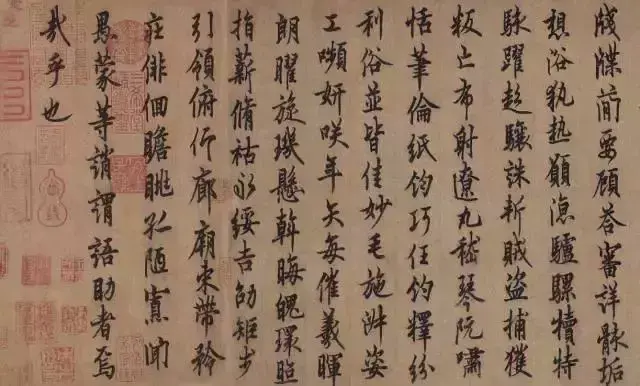 牋牒簡要顧答審詳骸垢
想浴執熱願涼驢騾犢特
駭躍超驤誅斬賊盜捕獲
叛亡布射遼丸嵇琴阮嘯
恬筆倫紙鈞巧任鈞釋紛
利俗並皆佳妙毛施淑姿
工嚬妍咲年矢每催羲暉
朗曜旋璣懸斡晦魄環照
指薪脩祜永綏吉劭矩步
引領俯仰廊廟束帶矜
莊俳佪瞻眺孤陋寡聞
愚蒙等誚謂語助者焉
哉乎也